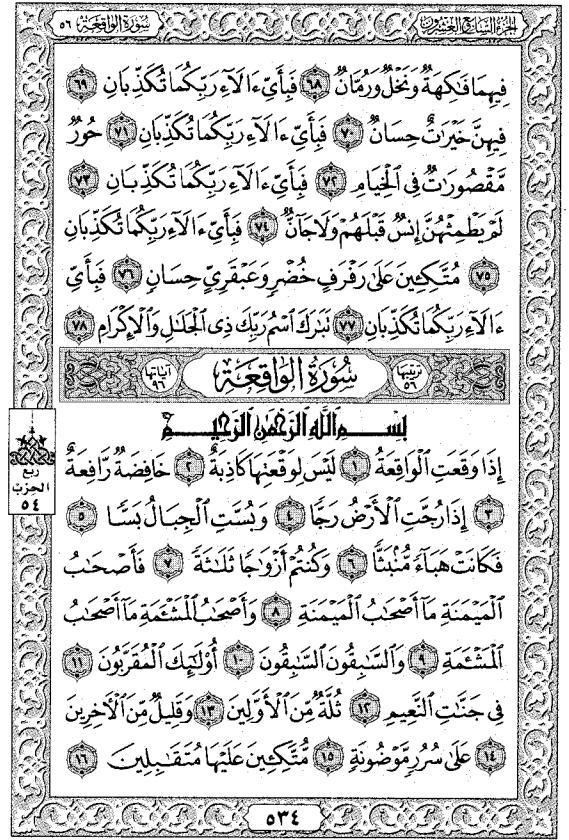 الجزء السابع والعشرون
سورة الواقعة ٥٦
فِيهِمَا فَٰكِهَةٌ وَنَخْلٌ وَرُمَّانٌ ٦٨ فَبِأَيِّ ءَالَآءِ رَبِّكُمَا تُكَذِّبَانِ ٦٩
فِيهِنَّ خَيْرَٰتٌ حِسَانٌ ٧٠ فَبِأَيِّ ءَالَآءِ رَبِّكُمَا تُكَذِّبَانِ ٧١ حُورٌ
مَّقْصُورَٰتٌ فِي ٱلْخِيَامِ ٧٢ فَبِأَيِّ ءَالَآءِ رَبِّكُمَا تُكَذِّبَانِ ٧٣
لَمْ يَطْمِثْهُنَّ إِنسٌ قَبْلَهُمْ وَلَا جَآنٌّ ٧٤ فَبِأَيِّ ءَالَآءِ رَبِّكُمَا تُكَذِّبَانِ
٧٥ مُتَّكِـِٔينَ عَلَىٰ رَفْرَفٍ خُضْرٍ وَعَبْقَرِيٍّ حِسَانٍ ٧٦ فَبِأَيِّ
ءَالَآءِ رَبِّكُمَا تُكَذِّبَانِ ٧٧ تَبَٰرَكَ ٱسْمُ رَبِّكَ ذِي ٱلْجَلَٰلِ وَٱلْإِكْرَامِ ٧٨
ترتيبها ٥٦ سُورَةُ الوَاقِعَة آياتها ٩٦
بِسْمِ ٱللَّهِ ٱلرَّحْمَٰنِ ٱلرَّحِيمِ
إِذَا وَقَعَتِ ٱلْوَاقِعَةُ ١ لَيْسَ لِوَقْعَتِهَا كَاذِبَةٌ ٢ خَافِضَةٌ رَّافِعَةٌ
٣ إِذَا رُجَّتِ ٱلْأَرْضُ رَجًّا ٤ وَبُسَّتِ ٱلْجِبَالُ بَسًّا ٥
فَكَانَتْ هَبَآءً مُّنۢبَثًّا ٦ وَكُنتُمْ أَزْوَٰجًا ثَلَٰثَةً ٧ فَأَصْحَٰبُ
ٱلْمَيْمَنَةِ مَآ أَصْحَٰبُ ٱلْمَيْمَنَةِ ٨ وَأَصْحَٰبُ ٱلْمَشْـَٔمَةِ مَآ أَصْحَٰبُ
ٱلْمَشْـَٔمَةِ ٩ وَٱلسَّٰبِقُونَ ٱلسَّٰبِقُونَ ١٠ أُو۟لَٰٓئِكَ ٱلْمُقَرَّبُونَ ١١
فِي جَنَّٰتِ ٱلنَّعِيمِ ١٢ ثُلَّةٌ مِّنَ ٱلْأَوَّلِينَ ١٣ وَقَلِيلٌ مِّنَ ٱلْءَاخِرِينَ
١٤ عَلَىٰ سُرُرٍ مَّوْضُونَةٍ ١٥ مُّتَّكِـِٔينَ عَلَيْهَا مُتَقَٰبِلِينَ ١٦
ربع
الحزب
٥٤
٥٣٤